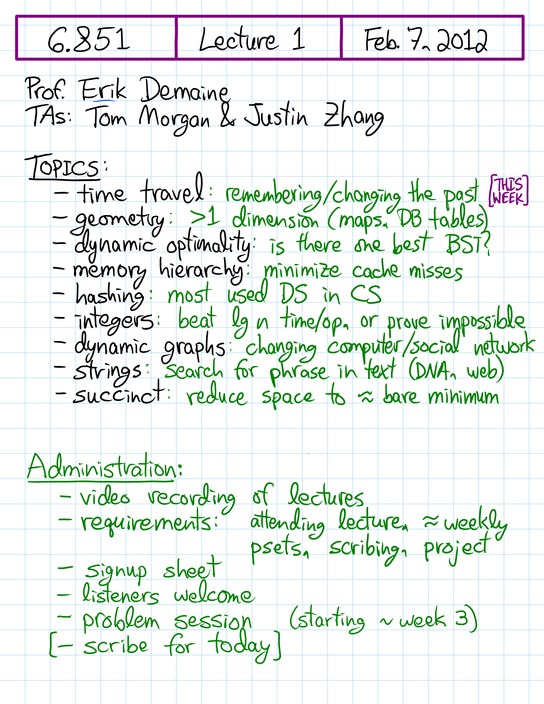 6.851 Lecture 1 Feb. 7, 2012
Prof. Erik Demaine
TAs: Tom Morgan & Justin Zhang
TOPICS:
- time travel: remembering/changing the past [THIS WEEK]
- geometry: >1 dimension (maps, DB tables)
- dynamic optimality: is there one best BST?
- memory hierarchy: minimize cache misses
- hashing: most used DS in CS
- integers: beat lg n time/op. or prove impossible
- dynamic graphs: changing computer/social network
- strings: search for phrase in text (DNA, web)
- succinct: reduce space to ≈ bare minimum
Administration:
- video recording of lectures
- requirements: attending lecture, ≈ weekly
psets, scribing, project
- signup sheet
- listeners welcome
- problem session (starting ~ week 3)
[- scribe for today]